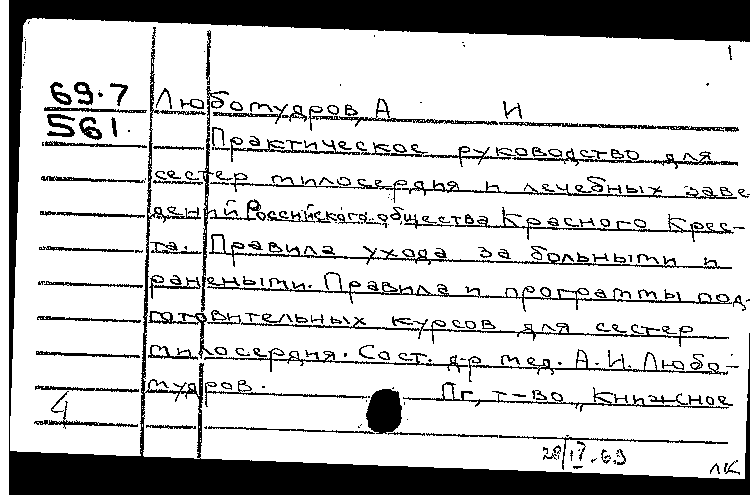 1
69.7 Любомудров, А И
561.
Практическое руководство для
сестер милосердия и лечебных заве
дений Российского общества Красного Крес-
та. Правила ухода за больными и
ранеными. Правила и программы под-
готовительных курсов для сестер
милосердия. Сост. д-р мед. А.И. Любо-
мудров. Пг, т-во „Книжное
4
28/IV-69
ЛК